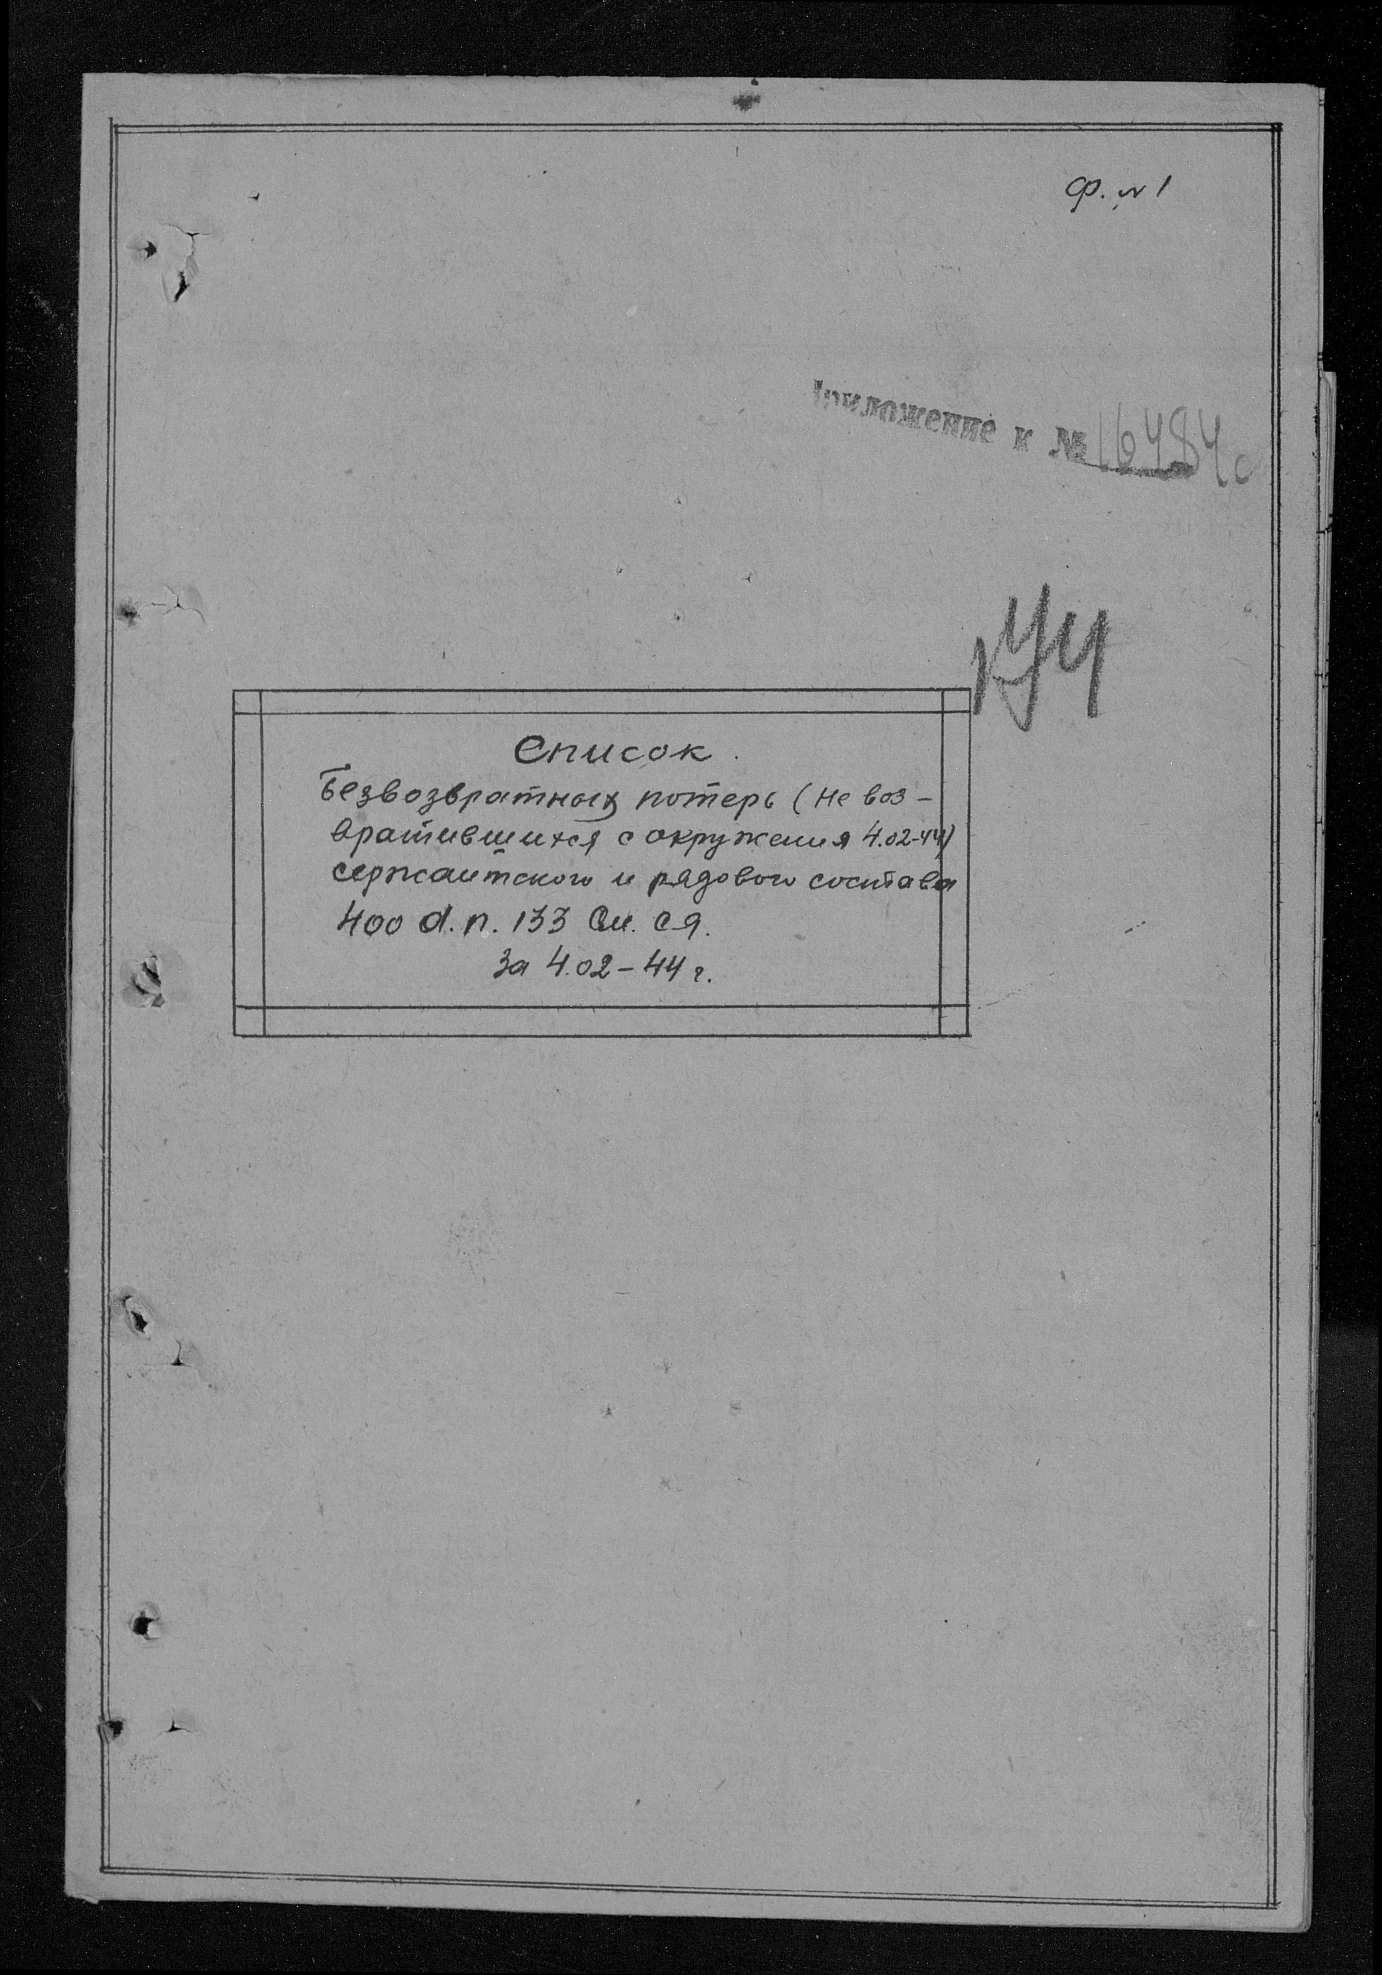 Ф. № 1
Приложение к № 16484с
Список
Безвозвратных потерь (не воз-
вратившихся с окружения 4.02-44)
сержантского и рядового состава
400 с.п. 133 См. с.д.
за 4.02-44 г.